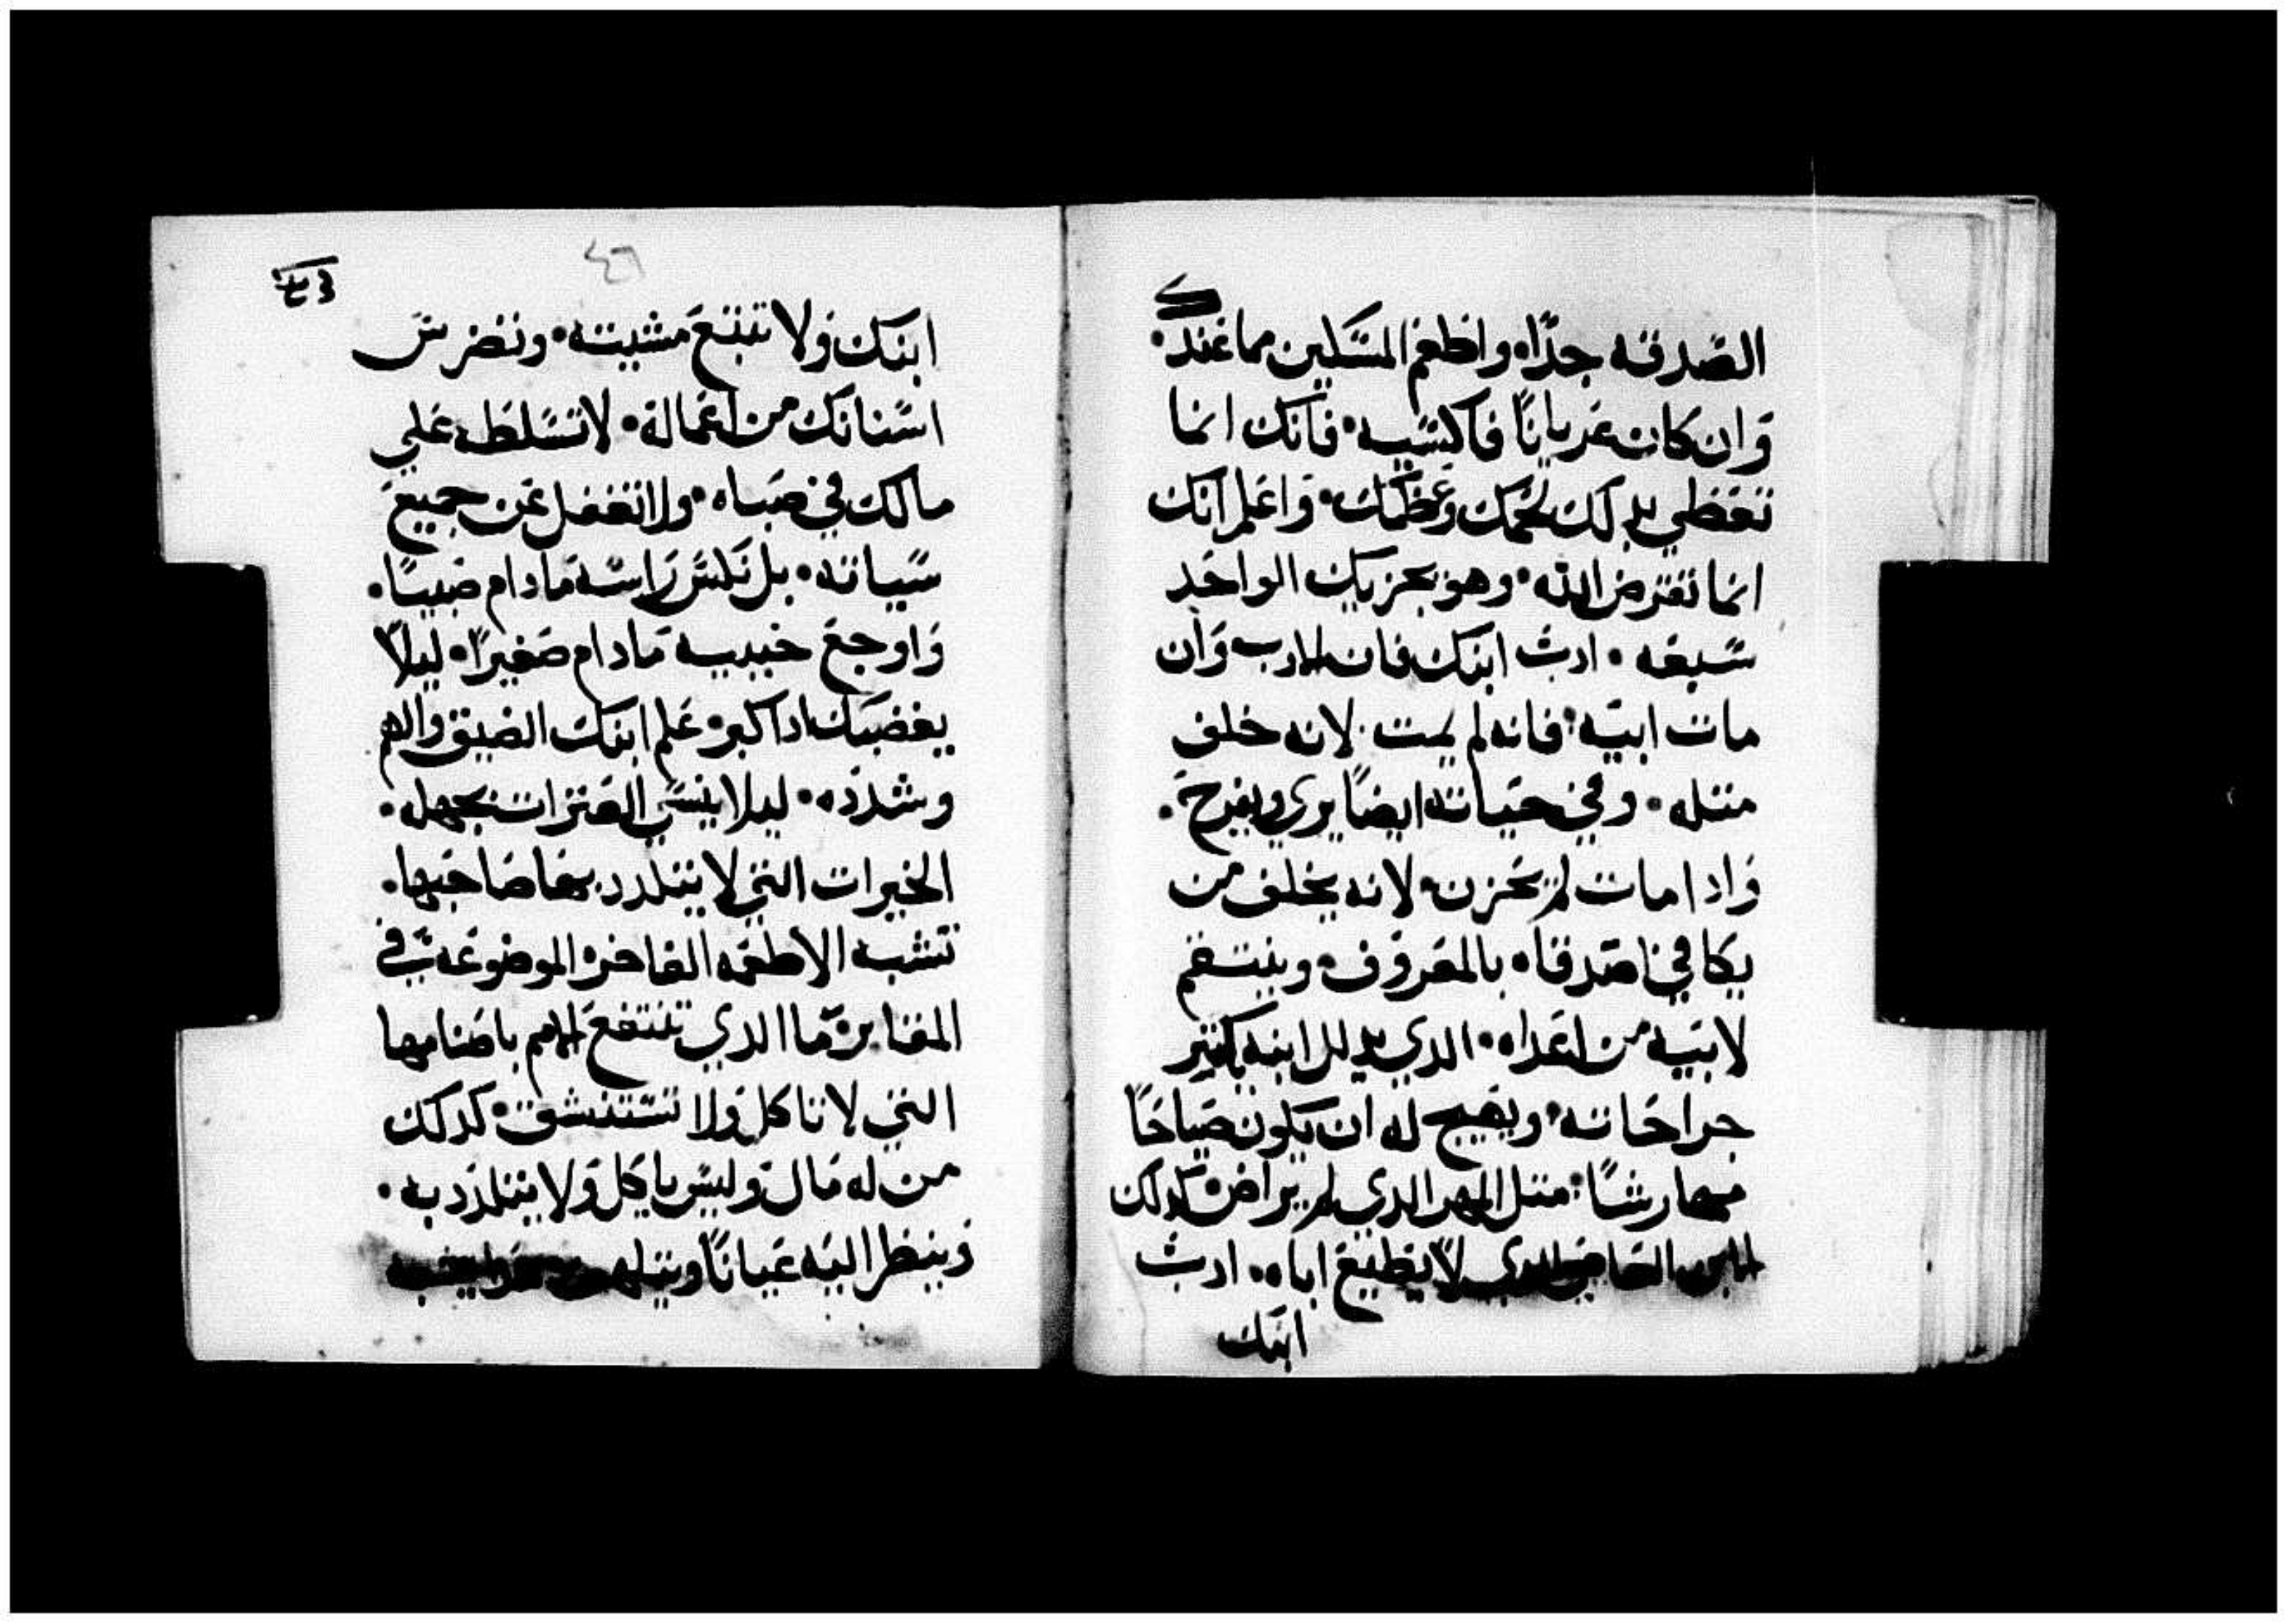 الصدقه جدًا. واطعم المسكين مما عندك.
وان كان عريانًا فاكسيه. فانك انما
تغطي بدلك لحمك وعظمك. واعلم انك
انما تقرض الله. وهو يجزيك الواحد
سبعه. ادب ابنك فان الادب وان
مات ابيه. فانه لم يمت. لانه خلف
متله. وفي حياته ايضًا يري ويفرح.
وادا مات لم يحزن. لانه يخلف من
يكافي اصدقاه بالمعروف. وينتقم
لابيه من اعداه. الدي يدلل ابنه
جراحاته. ويهيج له ان يكون صياحًا
مهارشًا. متل المهر الدي لم يراض. كدلك
الابن العاصي الدي لا يطيع اباه.. ادب
ابنك
٤٦
ابنك ولا تتبع مشيته. وتضرس
اسنانك من اعماله. لا تسلطه علي
مالك في صباه. ولا تغفل عن جميع
سياته. بل نكس راسه ما دام صبيًا.
واوجع جنبيه ما دام صغيرًا. ليلا
يغضبك ادا كبر. علم ابنك الضيق والهم
وشدده. ليلا ينسي العترات بجهله.
الخيرات التي لا يتلدد بها صاحبها.
تشبه الاطعمه الفاخره الموضوعه في
المقابر. ما الدي تنتفع الامم باصنامها
التي لا تاكل ولا تستنشق. كدلك
من له مال وليس ياكل ولا يتلدد به.
وينظر اليه عيانًا ويتلهف